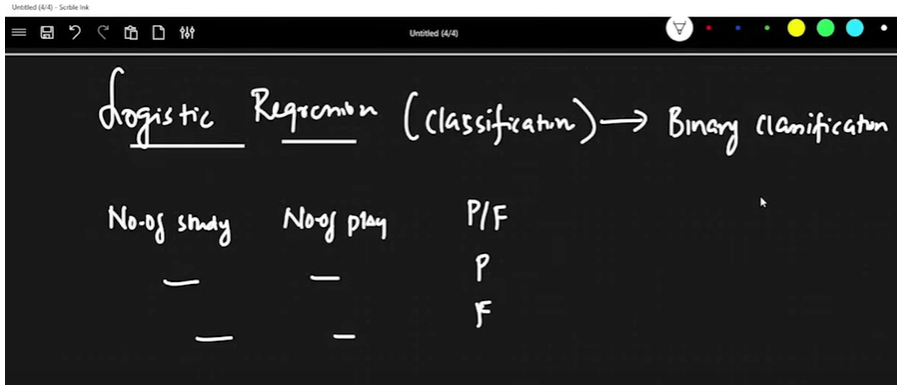 Untitled (4/4) - Scrble Ink
Untitled (4/4)
Logistic Regression (classification) → Binary classification
No.of study No.of play P/F
— — P
— — F